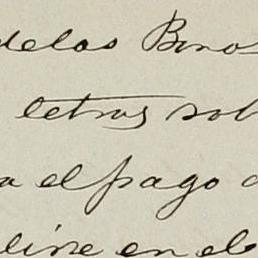 delas Bnos
letras sob
a el pago d
line en el